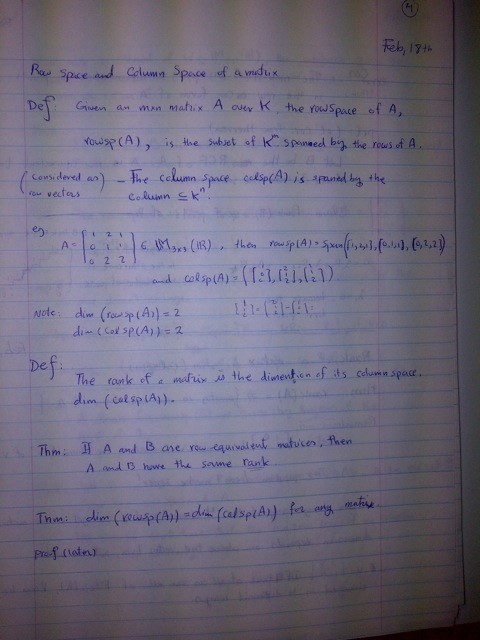 4
Feb, 18th
Row space and Column Space of a matrix
Def: Given an mxn matrix A over K, the rowspace of A,
rowsp(A), is the subset of Kᵐ spanned by the rows of A.
(considered as row vectors) - The column space colsp(A) is spaned by the
column ⊆ Kⁿ.
eg. A = [1 2 1; 0 1 1; 0 2 2] ∈ M₃ₓ₃(ℝ), then rowsp(A) = span([1,2,1],[0,1,1],[0,2,2])
and colsp(A) = ([1 0 0],[2 1 2],[1 1 2])
Note: dim (rowsp(A)) = 2
dim (colsp(A)) = 2
Def: The rank of a matrix is the dimention of its column space.
dim (colsp(A)).
Thm: If A and B are row equivalent matrices, then
A and B have the same rank
Thm: dim (rowsp(A)) = dim (colsp(A)) for any matrix.
proof (later)